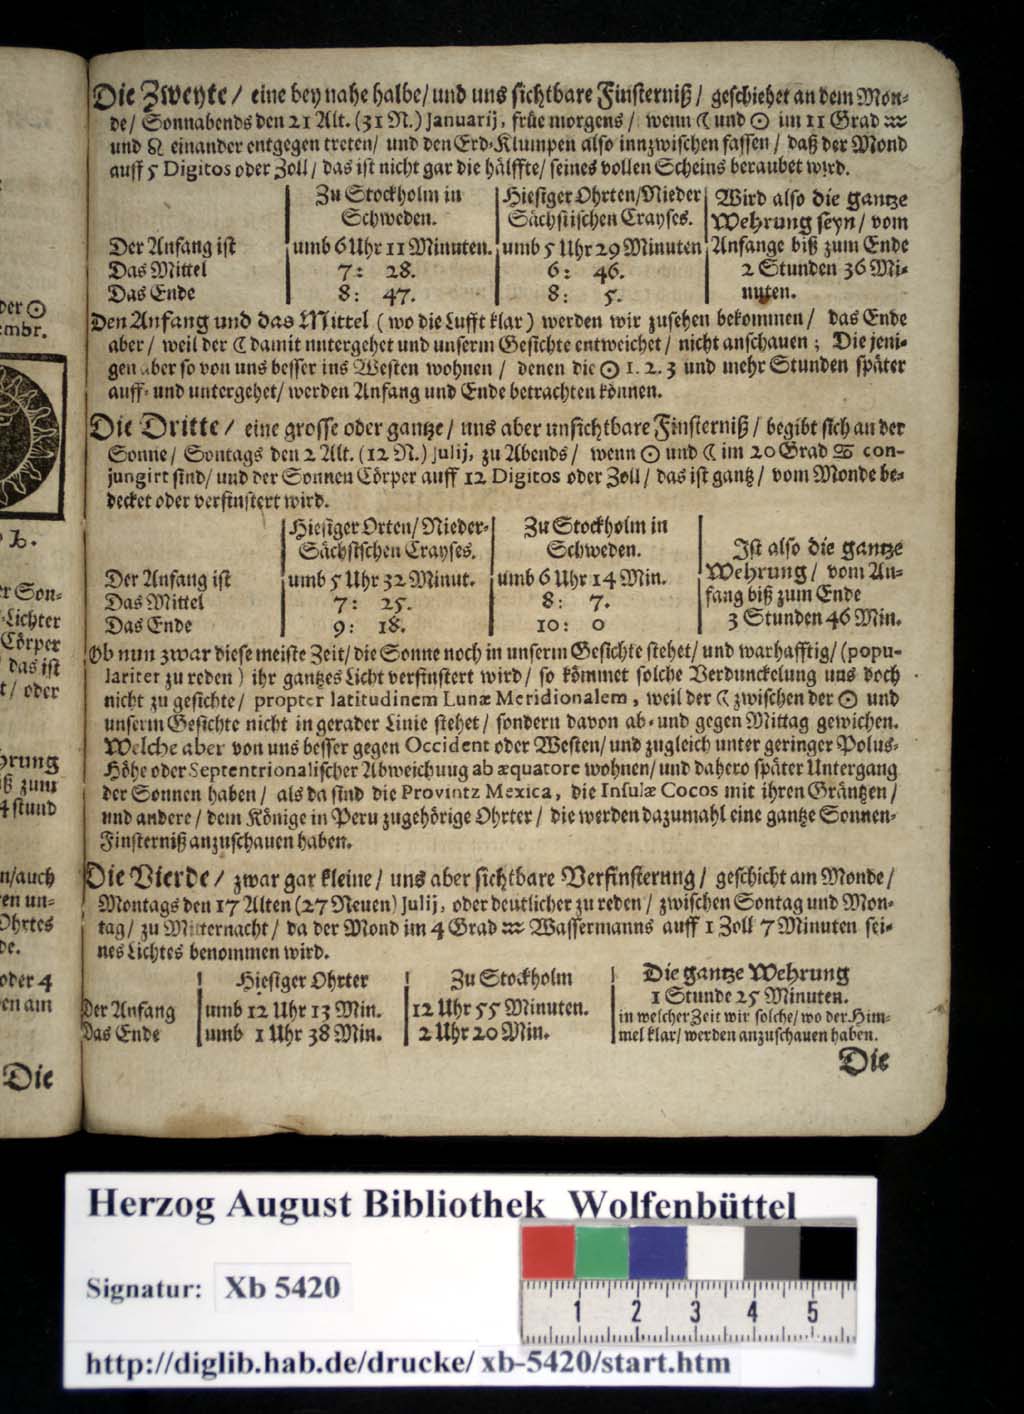 Die Zweyte/ eine bey nahe halbe/ und uns sichtbare Finsterniß/ geschiehet an dem Mon-
de/ Sonnabends den 21 Alt. (31 N.) Januarij, früe morgens/ wenn ☾ und ☉ im 11 Grad ♒
und ♌ einander entgegen treten/ und den Erd-Klumpen also innzwischen fassen/ daß der Mond
auff 5 Digitos oder Zoll/ das ist nicht gar die hälffte/ seines vollen Scheins beraubet wird.
Zu Stockholm in Hiesiger Ohrten/Nieder Wird also die gantze
Schweden. Sächsischen Crayses. Wehrung seyn/ vom
Der Anfang ist umb 6 Uhr 11 Minuten. umb 5 Uhr 29 Minuten Anfange biß zum Ende
Das Mittel 7: 28. 6: 46. 2 Stunden 36 Mi-
Das Ende 8: 47. 8: 5. nuten.
Den Anfang und das Mittel (wo die Lufft klar) werden wir zusehen bekommen/ das Ende
aber/ weil der ☾ damit nutergehet und unserm Gesichte entweichet/ nicht anschauen; Die jeni-
gen aber so von uns besser ins Westen wohnen/ denen die ☉ 1. 2. 3 und mehr Stunden später
auff- und untergehet/ werden Anfang und Ende betrachten können.
Die Dritte/ eine grosse oder gantze/ uns aber unsichtbare Finsterniß/ begibt sich an der
Sonne/ Sontags den 2 Alt. (12 N.) Julij, zu Abends/ wenn ☉ und ☾ im 20 Grad ♋ con-
jungirt sind/ und der Sonnen Cörper auff 12 Digitos oder Zoll/ das ist gantz/ vom Monde be-
decket oder verfinstert wird.
Hiesiger Orten/ Nieder- Zu Stockholm in
Sächsischen Crayses. Schweden. Ist also die gantze
Der Anfang ist umb 5 Uhr 32 Minut. umb 6 Uhr 14 Min. Wehrung/ vom An-
Das Mittel 7: 25. 8: 7. fang biß zum Ende
Das Ende 9: 18. 10: 0 3 Stunden 46 Min.
Ob nun zwar diese meiste Zeit/ die Sonne noch in unserm Gesichte stehet/ und warhafftig/ (popu-
lariter zu reden) ihr gantzes Licht verfinstert wird/ so kömmet solche Verdunckelung uns doch
nicht zu gesichte/ propter latitudinem Lunæ Meridionalem, weil der ☾ zwischen der ☉ und
unserm Gesichte nicht in gerader Linie stehet/ sondern davon ab- und gegen Mittag gewichen.
Welche aber von uns besser gegen Occident oder Westen/ und zugleich unter geringer Polus-
Höhe oder Septentrionalischer Abweichuug ab æquatore wohnen/ und dahero später Untergang
der Sonnen haben/ als da sind die Provintz Mexica, die Insulæ Cocos mit ihren Gräntzen/
und andere/ dem Könige in Peru zugehörige Ohrter/ die werden dazumahl eine gantze Sonnen-
Finsterniß anzuschauen haben.
Die Vierde/ zwar gar kleine/ uns aber sichtbare Verfinsterung/ geschicht am Monde/
Montags den 17 Alten (27 Neuen) Julij, oder deutlicher zu reden/ zwischen Sontag und Mon-
tag/ zu Mitternacht/ da der Mond im 4 Grad ♒ Wassermanns auff 1 Zoll 7 Minuten sei-
nes Lichtes benommen wird.
Hiesiger Ohrter Zu Stockholm Die gantze Wehrung
1 Stunde 25 Minuten.
Der Anfang umb 12 Uhr 13 Min. 12 Uhr 55 Minuten. in welcher Zeit wir solche/ wo der Him-
Das Ende umb 1 Uhr 38 Min. 2 Uhr 20 Min. mel klar/ werden anzuschauen haben.
Die
der ☉
embr.
er Son-
Lichter
Cörper
das ist
t/ oder
hrung
iß zum
4 stund
n/ auch
en un-
Ohrtes
de.
oder 4
en am
Die
Herzog August Bibliothek Wolfenbüttel
Signatur: Xb 5420
1 2 3 4 5
http://diglib.hab.de/drucke/xb-5420/start.htm